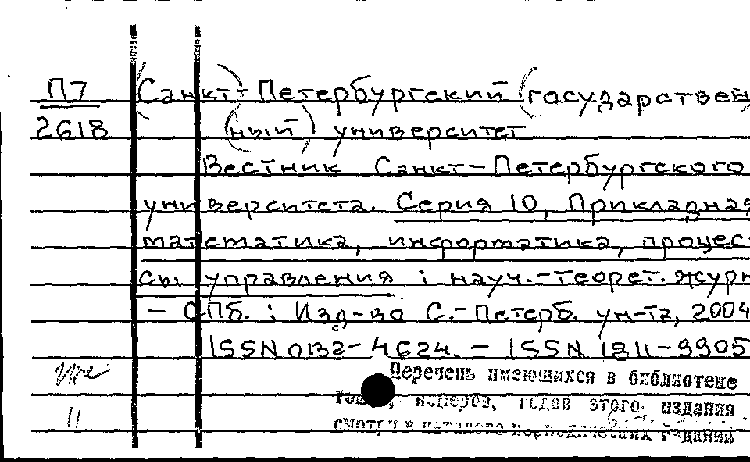 П7 (Санкт)-Петербургский (государствен
2618 (ный) университет
Вестник Санкт-Петербургского
университета. Серия 10, Прикладная
математика, информатика, процес
сы управления : науч.-теорет. журн
- СПб. : Изд-во С.-Петерб. ун-та, 2004
ISSN 0132-4624. - ISSN 1811-9905
Перечень имеющихся в библиотеке
номеров, годов этого издания
смотри в каталоге периодических изданий